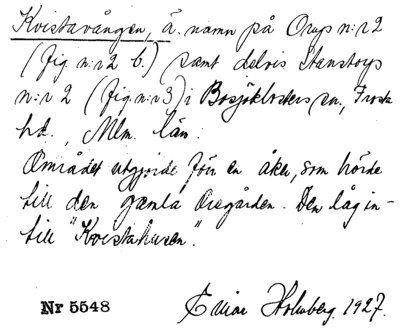 Kvistavången, ä. namn på Orups n:r 2
(fig. n:r 2 b.) samt delvis Stanstorps
n:r 2 (fig. n:r 3) i Bosjöklosters sn., Frosta
hd., Mlm. län.
Området utgjorde förr en åker, som hörde
till den gamla Orsgården. Den låg in-
till "Kvistahusen".
Nr 5548 Einar Holmberg 1927.